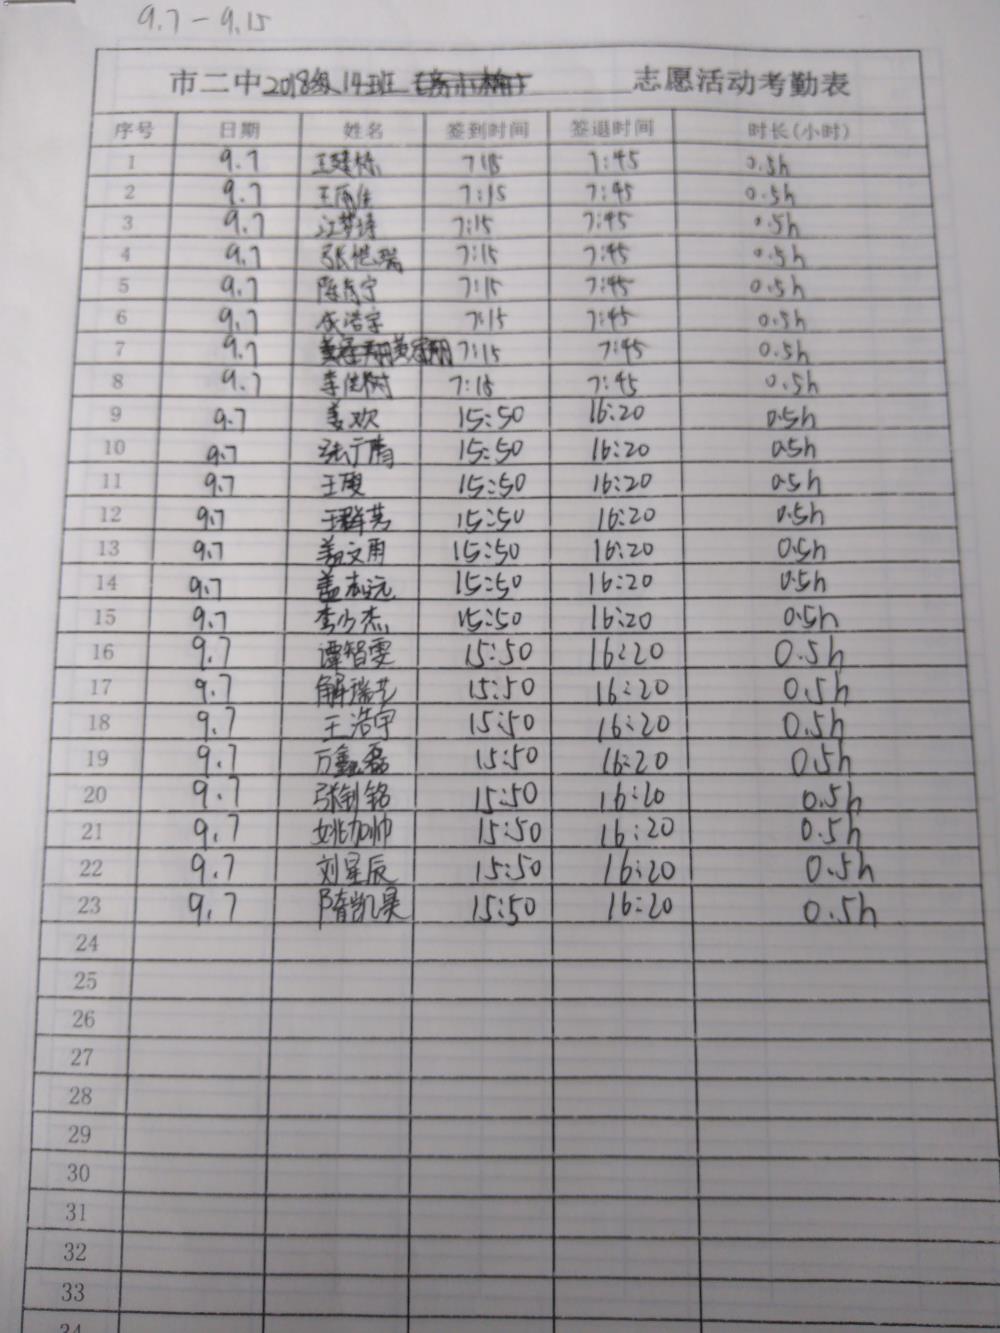 9.7-9.15
市二中2018级14班 志愿活动考勤表
序号 日期 姓名 签到时间 签退时间 时长(小时)
1 9.7 王建栋 7:15 7:45 0.5h
2 9.7 王雨佳 7:15 7:45 0.5h
3 9.7 江梦诗 7:15 7:45 0.5h
4 9.7 张恺瑞 7:15 7:45 0.5h
5 9.7 7:15 7:45 0.5h
6 9.7 成浩宇 7:15 7:45 0.5h
7 9.7 7:15 7:45 0.5h
8 9.7 李俊树 7:15 7:45 0.5h
9 9.7 姜欢 15:50 16:20 0.5h
10 9.7 张广腾 15:50 16:20 0.5h
11 9.7 15:50 16:20 0.5h
12 9.7 15:50 16:20 0.5h
13 9.7 姜文甬 15:50 16:20 0.5h
14 9.7 盖志远 15:50 16:20 0.5h
15 9.7 李少杰 15:50 16:20 0.5h
16 9.7 谭智雯 15:50 16:20 0.5h
17 9.7 解瑞艺 15:50 16:20 0.5h
18 9.7 王浩宇 15:50 16:20 0.5h
19 9.7 万鑫磊 15:50 16:20 0.5h
20 9.7 张钊铭 15:50 16:20 0.5h
21 9.7 姚加帅 15:50 16:20 0.5h
22 9.7 刘星辰 15:50 16:20 0.5h
23 9.7 隋凯昊 15:50 16:20 0.5h
24
25
26
27
28
29
30
31
32
33
34